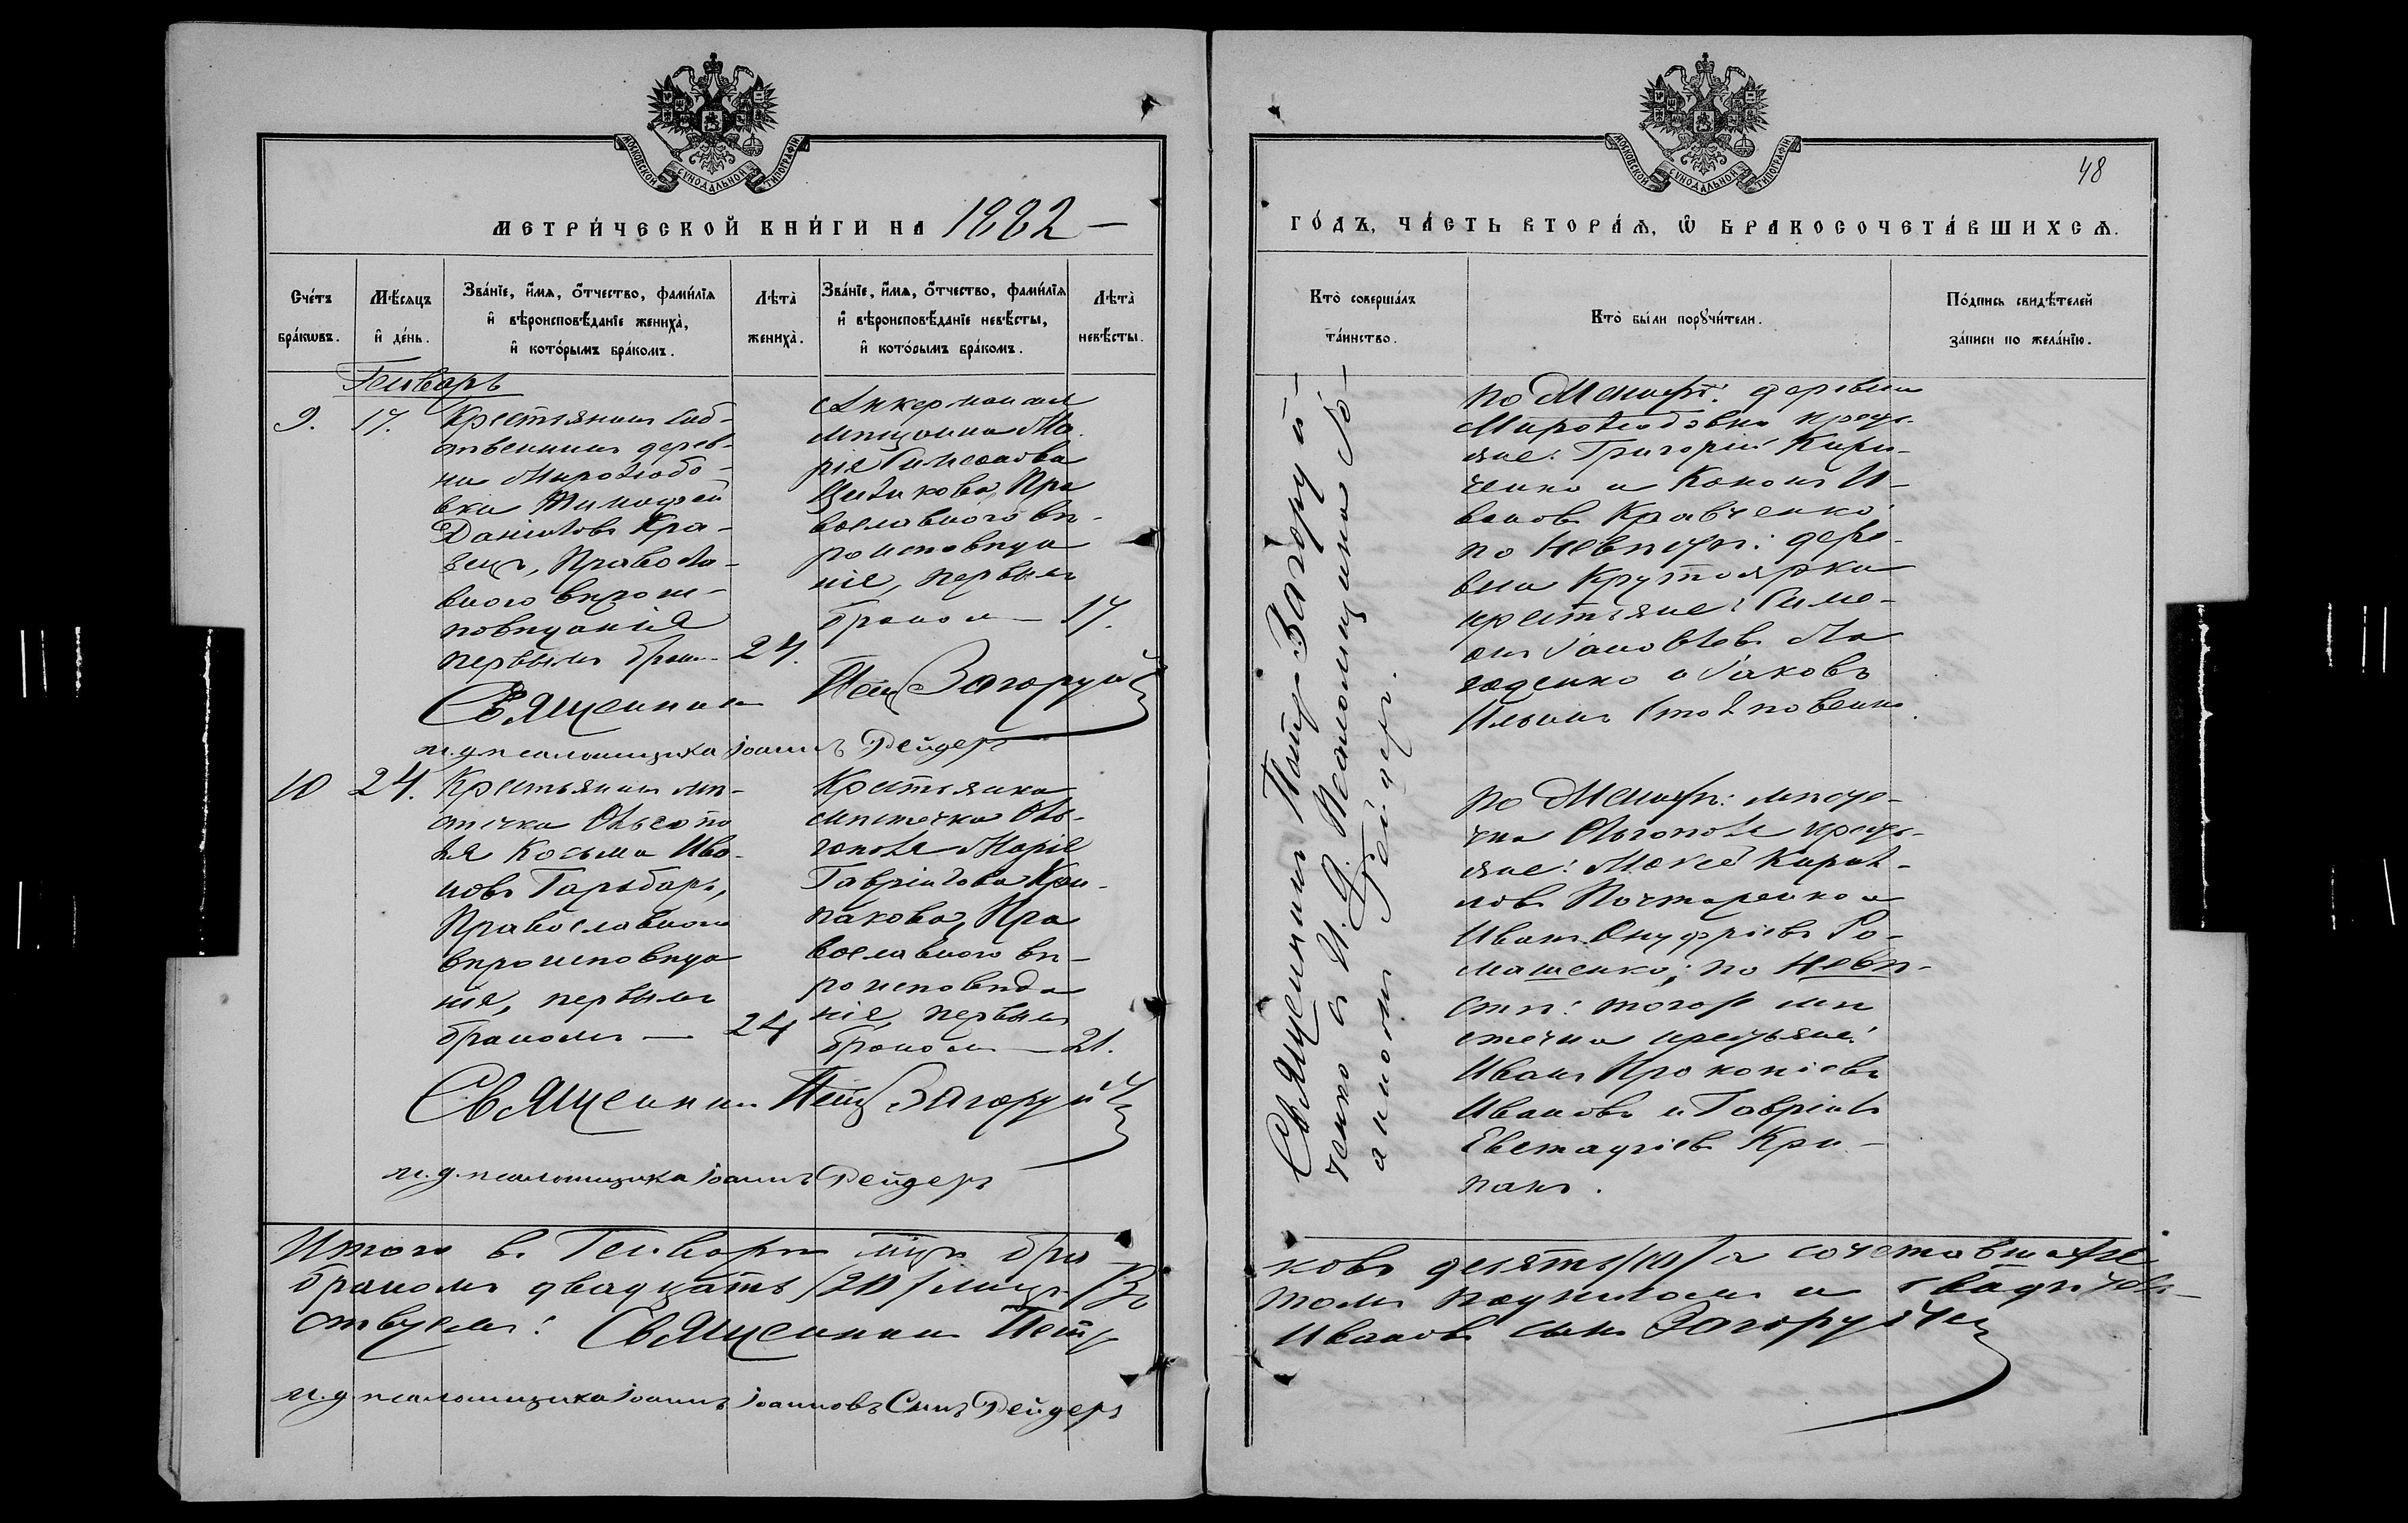 МОСКОВСКОЙ СУНОДАЛЬНОЙ ТИПОГРАФІИ
МЕТРИ́ЧЕСКОЙ КНИ́ГИ НА 1882 –
Сче́тъ бра́кѡвъ.
Мѣ́сѧцъ и҆ де́нь.
Зва́нїе, и҆́мѧ, ѻ҆́тчество, фами́лїѧ
и҆ вѣроисповѣ́данїе жениха̀,
и҆ кото́рымъ бра́комъ.
Лѣта̀ жениха̀.
Зва́нїе, и҆́мѧ, ѻ҆́тчество, фами́лїѧ
и҆ вѣроисповѣ́данїе невѣ́сты,
и҆ кото́рымъ бра́комъ.
Лѣта̀ невѣ́сты.
Генварь
9.
17.
Крестьянинъ соб-
ственникъ дерев-
ни Миролюбо-
вки Тимофей
Даніиловъ Кра-
вецъ, Правосла-
внаго вѣроис-
повѣданія
первымъ брак.
24.
Аккерманская
мѣщанка Ма-
рія Симеонова
Пра
вославнаго вѣ-
роисповѣда
нія, первымъ
бракомъ – 17.
Священникъ Петръ Загоруй
и. д. псаломщика Іоаннъ Рейдеръ
10
24.
Крестьянинъ мѣ-
стечка Ольгопо
ля Косьма Ива-
новъ Гарбаръ,
Православнаго
вѣроисповѣда
нія, первымъ
бракомъ –
24
Крестьянка
мѣстечка Оль-
гополя Марія
Гавріилова Кри-
пакова, Пра
вославнаго вѣ-
роисповѣда
нія, первымъ
бракомъ – 21.
Священникъ Петръ Загоруй
и. д. псаломщика Іоаннъ Рейдеръ
Итого въ Генварѣ мцѣ бра
бракомъ двадцать /20/ лицъ. /Въ
ствуемъ: Священникъ Петръ
и. д. псаломщика Іоаннъ Іоанновъ Сынъ Рейдеръ
МОСКОВСКОЙ СУНОДАЛЬНОЙ ТИПОГРАФІИ
48
ГО́ДЪ, ЧА́СТЬ ВТОРА́Ѧ, Ѽ БРАКОСОЧЕТА́ВШИХСѦ.
Кто̀ соверша́лъ та́инство.
Кто̀ бы́ли порꙋчи́тели.
По́дпись свидѣ́телей за́писи по жела́нїю.
Священникъ Петръ Загоруй-
ченко и И. Д. Псаломщика Іо-
аннъ Рейдеръ.
по Женихѣ: деревни
Миролюбовки кресть-
яне: Григорій Кири-
ченко и Кононъ И-
вановъ Кравченко;
по Невѣстѣ: дере-
вни Крутоярки
крестьяне: Симе-
онъ Іаковлевъ Ла
годенко и Іаковъ
Ильинъ Столповенко.
по Женихѣ: мѣсте-
чка Ольгополя кресть-
яне: Моисей Кирил-
ловъ Почтаренко и
Иванъ Онуфріевъ Ро-
машенко; по Невѣ-
стѣ: тогож мѣ
стечка крестьяне:
Иванъ Прокопіевъ
Ивановъ и Гавріилъ
Евстафіевъ Кри-
пакъ.
ковъ десять /10/ а сочетавшихся
томъ подписомъ и свидѣтель-
Ивановъ сынъ Загоруйчен